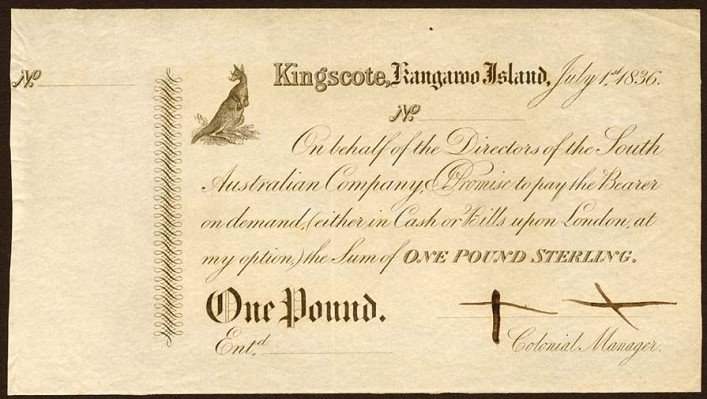 No
Kingscote, Kangaroo Island, July 1.st 1836.
No
On behalf of the Directors of the South
Australian Company, I Promise to pay the Bearer
on demand, (either in Cash or Bills upon London, at
my option,) the Sum of ONE POUND STERLING.
One Pound.
Ent.d
Colonial Manager.